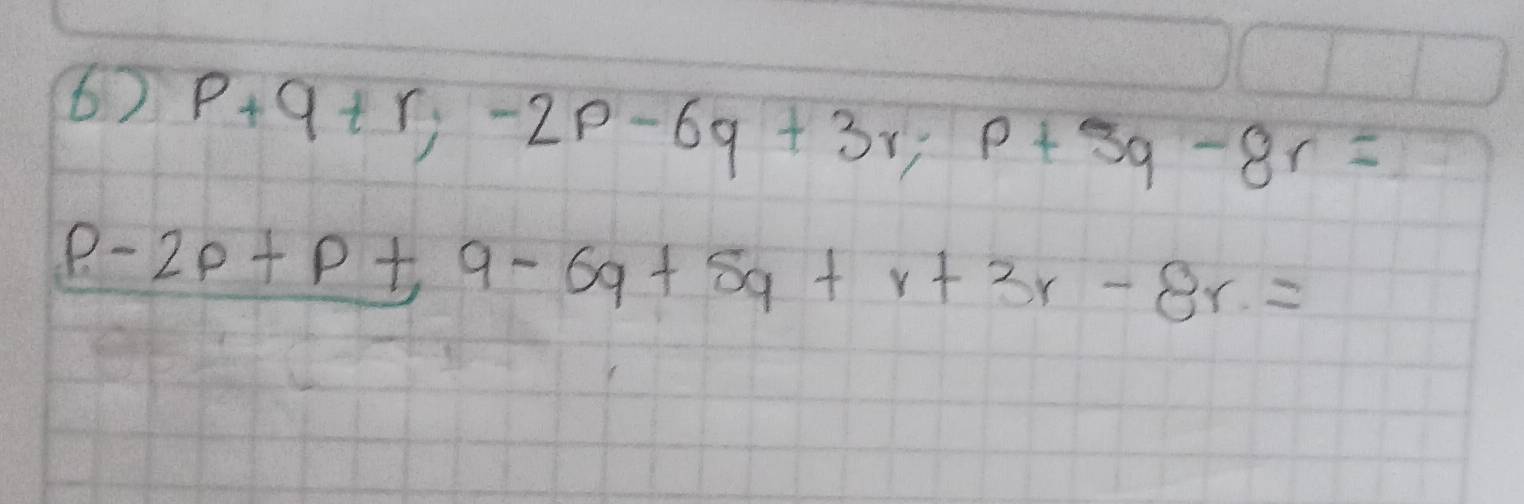 6) p+q+r; -2p-6q+3r; p+5q-8r=
p-2p+p+q-6q+5q+r+3r-8r=